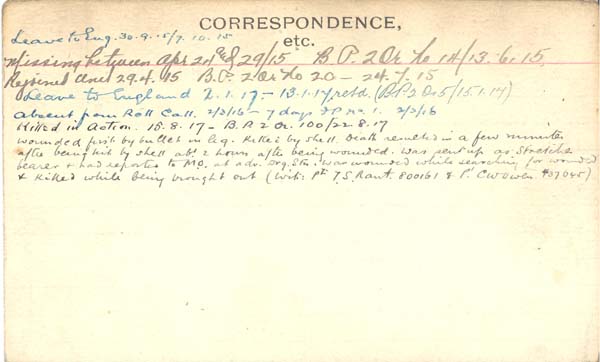 CORRESPONDENCE,
etc.
Leave to Eng. 30.9.15/7.10.15
Missing between Apr 24 & 29/15 B.P. 2 Or No 14/13.6.15
Rejoined Unit 29.4.15 B.P. 2 Or No 20 - 24.7.15
Leave to England 2.1.17 - 13.1.17 retd. (B.P.2 O.5/15.1.17)
Absent from Roll Call. 2/3/16 - 7 days F.P. No. 1 2/3/16
Killed in Action. 15.8.17 - B.P. 2 Or. 100/22.8.17
Wounded first by bullet in leg. Killed by shell. Death resulted in a few minutes
after being hit by shell abt. 2 hours after being wounded. Was sent up as stretcher
bearer & had reported to M.O. at adv. Drg. Stn. Was wounded while searching for wounded
& killed while being brought out (Wit: Pte T.S. Rant. 800161 & Pt C W Owen #37045)